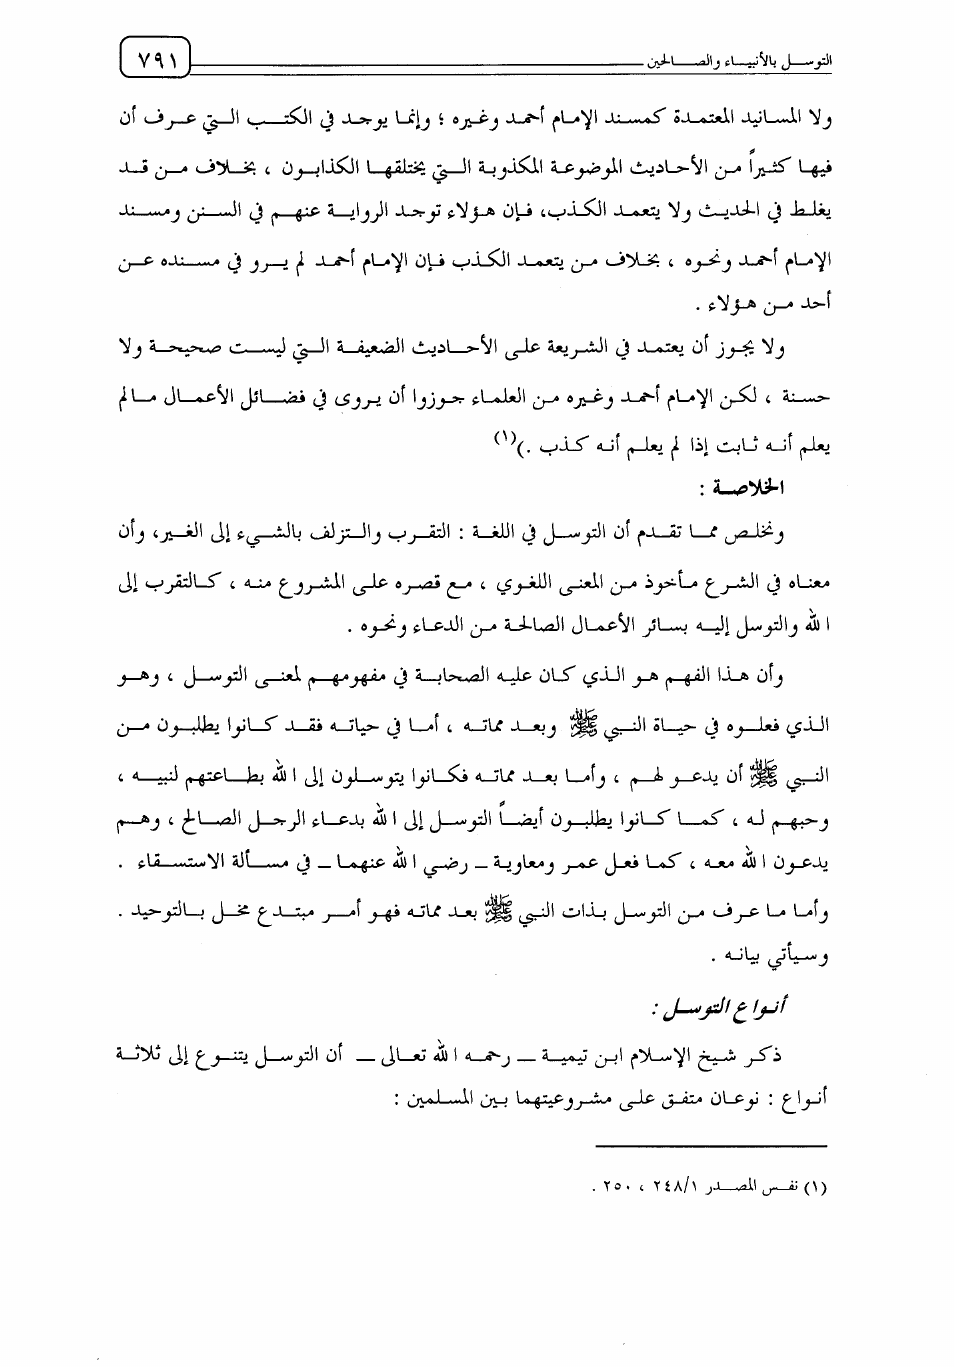 التوسل بالأنبياء والصالحين
٧٩١
ولا المسانيد المعتمدة كمسند الإمام أحمد وغيره ؛ وإنما يوجد في الكتب التي عرف أن
فيها كثيراً من الأحاديث الموضوعة المكذوبة التي يختلقها الكذابون ، بخلاف من قد
يغلط في الحديث ولا يتعمد الكذب، فإن هؤلاء توجد الرواية عنهم في السنن ومسند
الإمام أحمد ونحوه ، بخلاف من يتعمد الكذب فإن الإمام أحمد لم يرو في مسنده عن
أحد من هؤلاء .
ولا يجوز أن يعتمد في الشريعة على الأحاديث الضعيفة التي ليست صحيحة ولا
حسنة ، لكن الإمام أحمد وغيره من العلماء جوزوا أن يروى في فضائل الأعمال مالم
يعلم أنه ثابت إذا لم يعلم أنه كذب .)(١)
الخلاصة :
ونخلص مما تقدم أن التوسل في اللغة : التقرب والتزلف بالشيء إلى الغير، وأن
معناه في الشرع مأخوذ من المعنى اللغوي ، مع قصره على المشروع منه ، كالتقرب إلى
الله والتوسل إليه بسائر الأعمال الصالحة من الدعاء ونحوه .
وأن هذا الفهم هو الذي كان عليه الصحابة في مفهومهم لمعنى التوسل ، وهو
الذي فعلوه في حياة النبي ﷺ وبعد مماته ، أما في حياته فقد كانوا يطلبون من
النبي ﷺ أن يدعو لهم ، وأما بعد مماته فكانوا يتوسلون إلى الله بطاعتهم لنبيه ،
وحبهم له ، كما كانوا يطلبون أيضاً التوسل إلى الله بدعاء الرجل الصالح ، وهم
يدعون الله معه ، كما فعل عمر ومعاوية ــ رضي الله عنهما ــ في مسألة الاستسقاء .
وأما ما عرف من التوسل بذات النبي ﷺ بعد مماته فهو أمر مبتدع مخل بالتوحيد .
وسيأتي بيانه .
أنواع التوسل :
ذكر شيخ الإسلام ابن تيمية ــ رحمه الله تعالى ــ أن التوسل يتنوع إلى ثلاثة
أنواع : نوعان متفق على مشروعيتهما بين المسلمين :
(١) نفس المصدر ٢٤٨/١ ، ٢٥٠ .